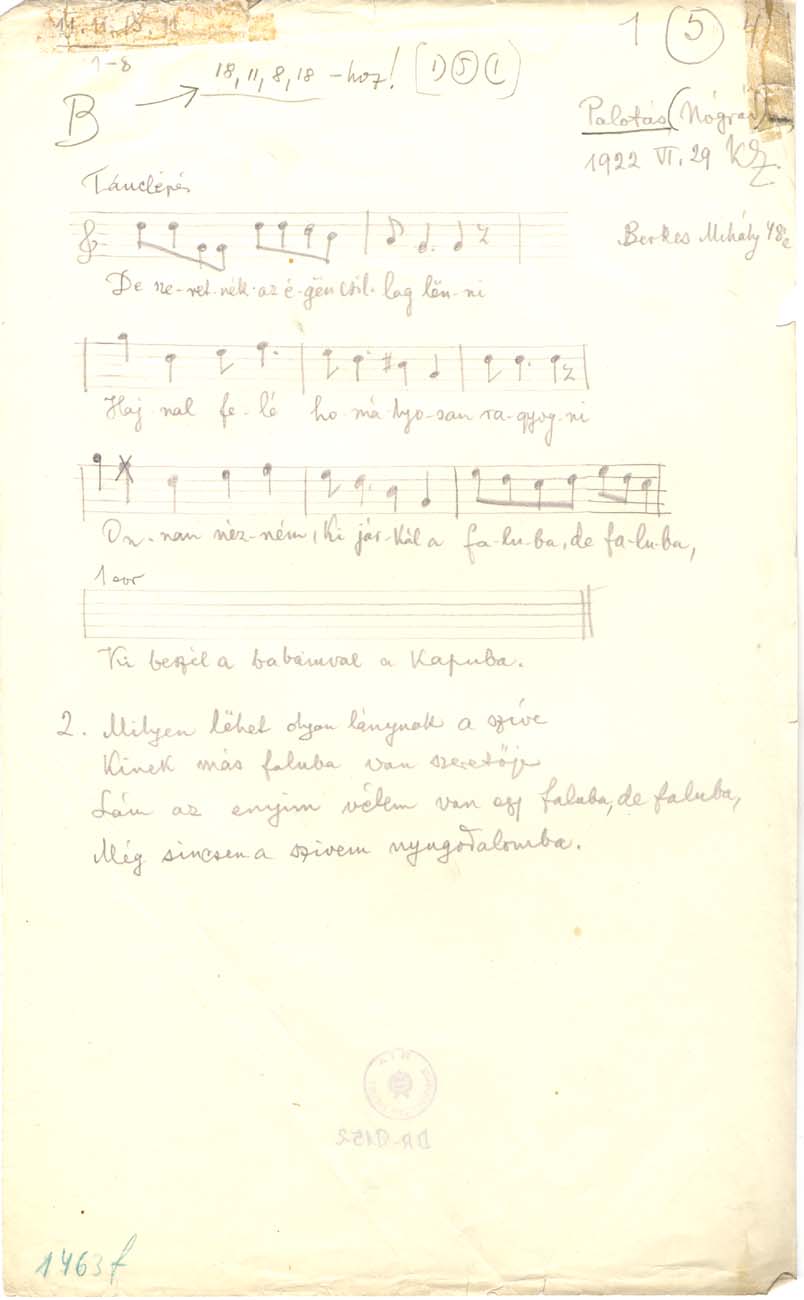 11. 11. 15. 11
1 (5) 4
1-8
18, 11, 8, 18 -hoz! [1) (5) (1]
B
Palotás (Nógrád)
1922 VI. 29 KZ.
Tánclépés
Berkes Mihály 48é
De sze-ret-nék-az é-gën csil-lag lën-ni
Haj nal fe-lé ho-má-lyo-san ra-gyog-ni
On-nan néz-ném, Ki jár-kál a fa-lu-ba, de fa-lu-ba,
1 sor
Ki beszél a babámval a Kapuba.
2. Milyen lëhet olyan lánynak a szíve
Kinek más faluba van szeretője
Lám az enyim vélem van egy faluba, de faluba,
Még sincsen a szivem nyugodalomba.
DR-9152
1463f